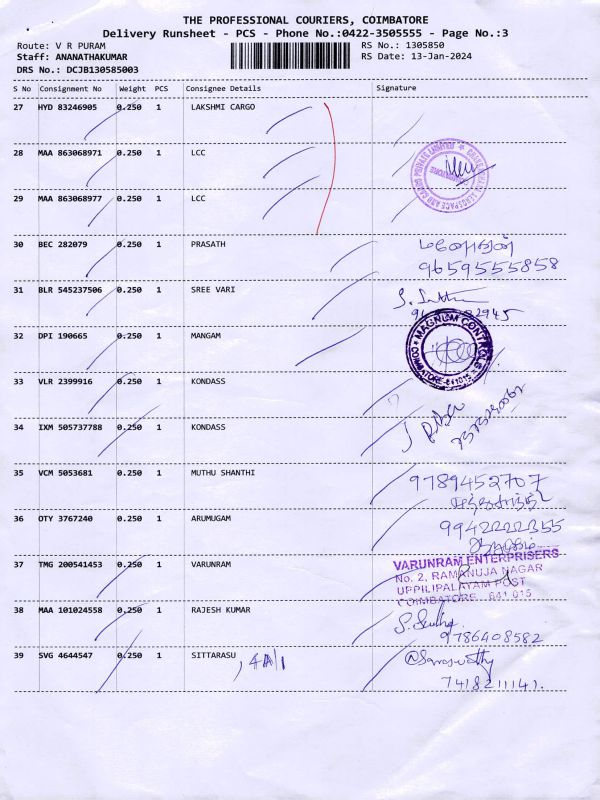 THE PROFESSIONAL COURIERS, COIMBATORE
Delivery Runsheet - PCS - Phone No.:0422-3505555 - Page No.:3
Route: V R PURAM RS No.: 1305850
Staff: ANANATHAKUMAR RS Date: 13-Jan-2024
DRS No.: DCJB130585003
S No Consignment No Weight PCS Consignee Details Signature
27 HYD 83246905 0.250 1 LAKSHMI CARGO
28 MAA 863068971 0.250 1 LCC
29 MAA 863068977 0.250 1 LCC
30 BEC 282079 0.250 1 PRASATH
9659555858
31 BLR 545237506 0.250 1 SREE VARI
32 DPI 190665 0.250 1 MANGAM
MAGNUM CONTROLS
COIMBATORE-641015
33 VLR 2399916 0.250 1 KONDASS
34 IXM 505737788 0.250 1 KONDASS
35 VCM 5053681 0.250 1 MUTHU SHANTHI 9789452707
36 OTY 3767240 0.250 1 ARUMUGAM 9942222355
37 TMG 200541453 0.250 1 VARUNRAM VARUNRAM ENTERPRISERS
No. 2, RAMANUJA NAGAR
UPPILIPALAYAM POST
COIMBATORE 641 015
38 MAA 101024558 0.250 1 RAJESH KUMAR
9786408582
39 SVG 4644547 0.250 1 SITTARASU @Saraswathy
7418211141.